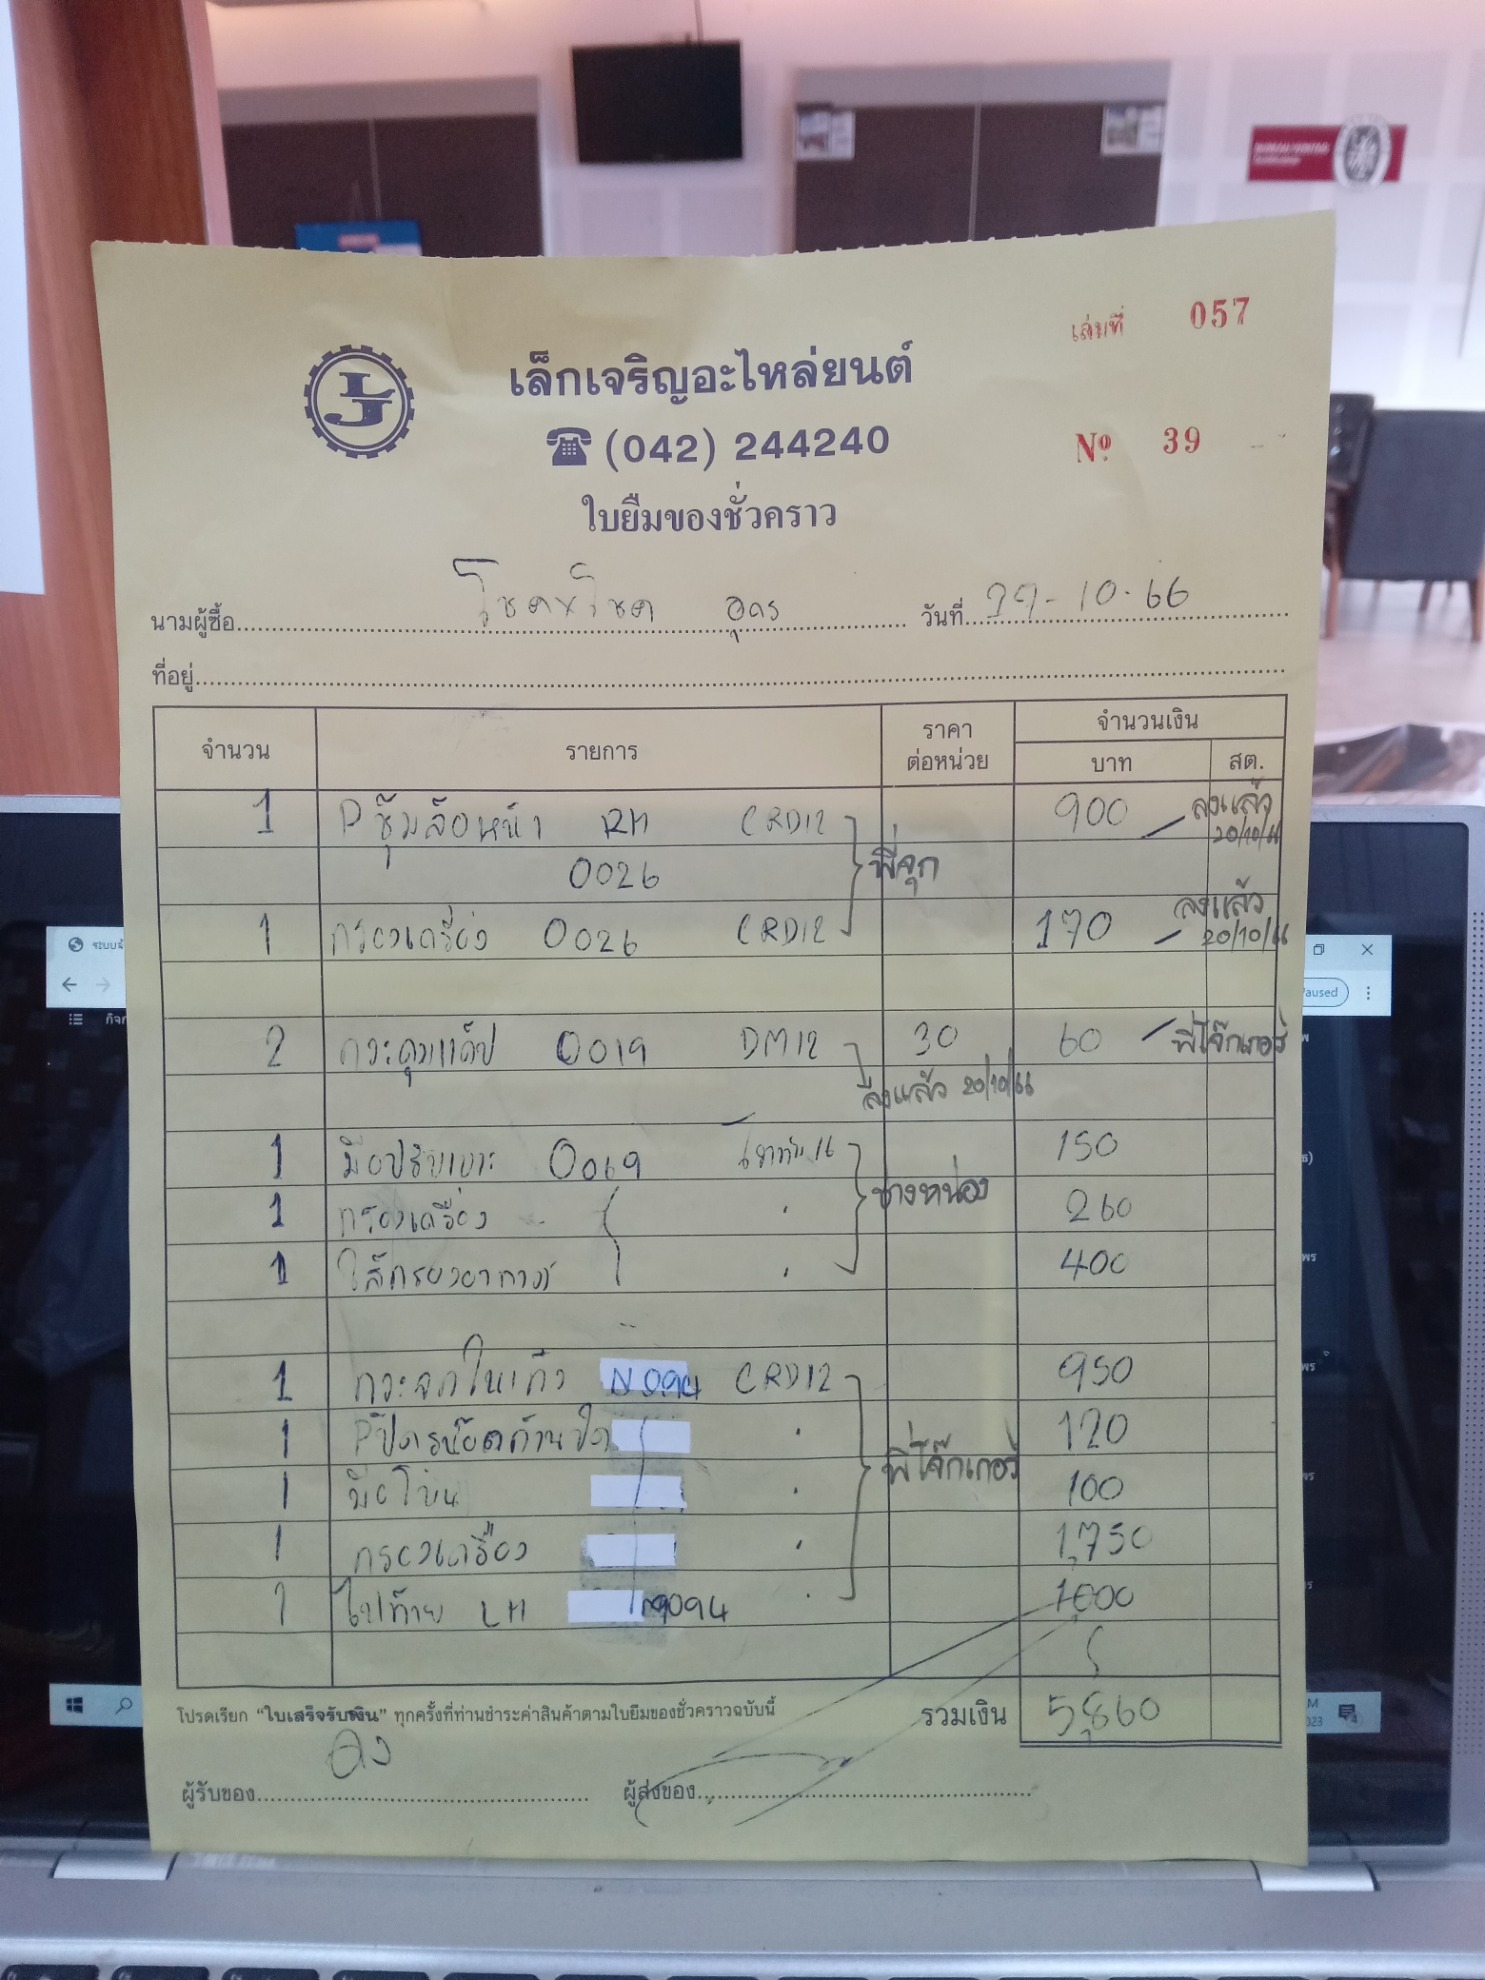 เล่มที่ 057
LJ
เล็กเจริญอะไหล่ยนต์
(042) 244240
Nº 39
ใบยืมของชั่วคราว
นามผู้ซื้อ โชคทวีโชค อุดร วันที่ 19-10-66
ที่อยู่
จำนวน รายการ ราคาต่อหน่วย จำนวนเงิน
บาท สต.
1 Pซุ้มล้อหน้า RH CRD12 900 ลงแล้ว 20/10/66
0026 พี่จุก
1 กรองเครื่อง 0026 CRD12 170 ลงแล้ว 20/10/66
2 กระดุมแค๊ป 0019 DM12 30 60 พี่โจ๊กเกอร์
ลงแล้ว 20/10/66
1 มือปรับเบาะ 0069 150
1 กรองเครื่อง ช่างหน่อง 260
1 ไส้กรองอากาศ 400
1 กระจกในเก๋ง N094 CRD12 950
1 120
1 มือโหน พี่โจ๊กเกอร์ 100
1 กรองเครื่อง 1,750
1 ไฟท้าย LH 094 1000
โปรดเรียก "ใบเสร็จรับเงิน" ทุกครั้งที่ท่านชำระค่าสินค้าตามใบยืมของชั่วคราวฉบับนี้ รวมเงิน 5,860
ผู้รับของ ผู้ส่งของ